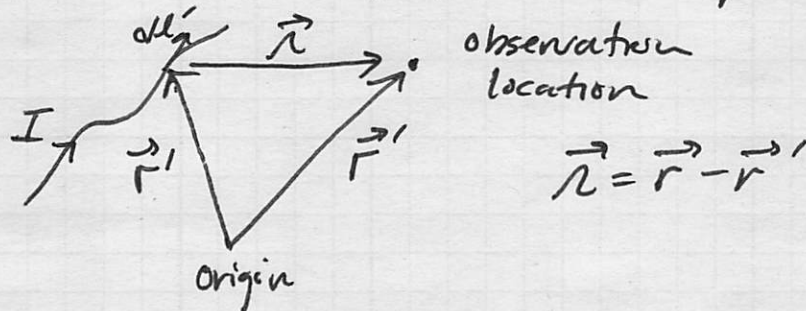 dl⃗' 𝓇⃗ observation
location
I r⃗' r⃗' 𝓇⃗ = r⃗ - r⃗'
origin